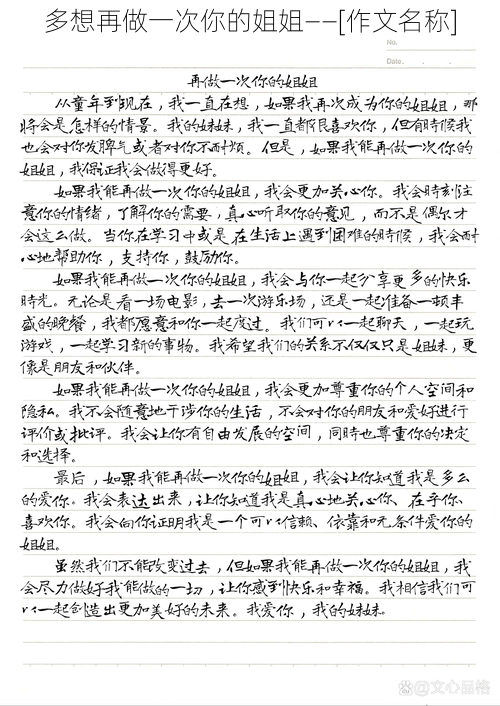 多想再做一次你的姐姐--[作文名称]
No.
Date.
再做一次你的姐姐
从童年到现在，我一直在想，如果我再次成为你的姐姐，那
将会是怎样的情景。我的妹妹，我一直都很喜欢你，但有时候我
也会对你发脾气或者对你不耐烦。但是，如果我能再做一次你的
姐姐，我保证我会做得更好。
如果我能再做一次你的姐姐，我会更加关心你。我会时刻注
意你的情绪，了解你的需要，真心听取你的意见，而不是偶尔才
会这么做。当你在学习中或是在生活上遇到困难的时候，我会耐
心地帮助你，支持你，鼓励你。
如果我能再做一次你的姐姐，我会与你一起分享更多的快乐
时光。无论是看一场电影，去一次游乐场，还是一起准备一顿丰
盛的晚餐，我都愿意和你一起度过。我们可以一起聊天，一起玩
游戏，一起学习新的事物。我希望我们的关系不仅仅只是姐妹，更
像是朋友和伙伴。
如果我能再做一次你的姐姐，我会更加尊重你的个人空间和
隐私。我不会随意地干涉你的生活，不会对你的朋友和爱好进行
评价或批评。我会让你有自由发展的空间，同时也尊重你的决定
和选择。
最后，如果我能再做一次你的姐姐，我会让你知道我是多么
的爱你。我会表达出来，让你知道我是真心地关心你、在乎你、
喜欢你。我会向你证明我是一个可以信赖、依靠和无条件爱你的
姐姐。
虽然我们不能改变过去，但如果我能再做一次你的姐姐，我
会尽力做好我能做的一切，让你感到快乐和幸福。我相信我们可
以一起创造出更加美好的未来。我爱你，我的妹妹。
@文心品格